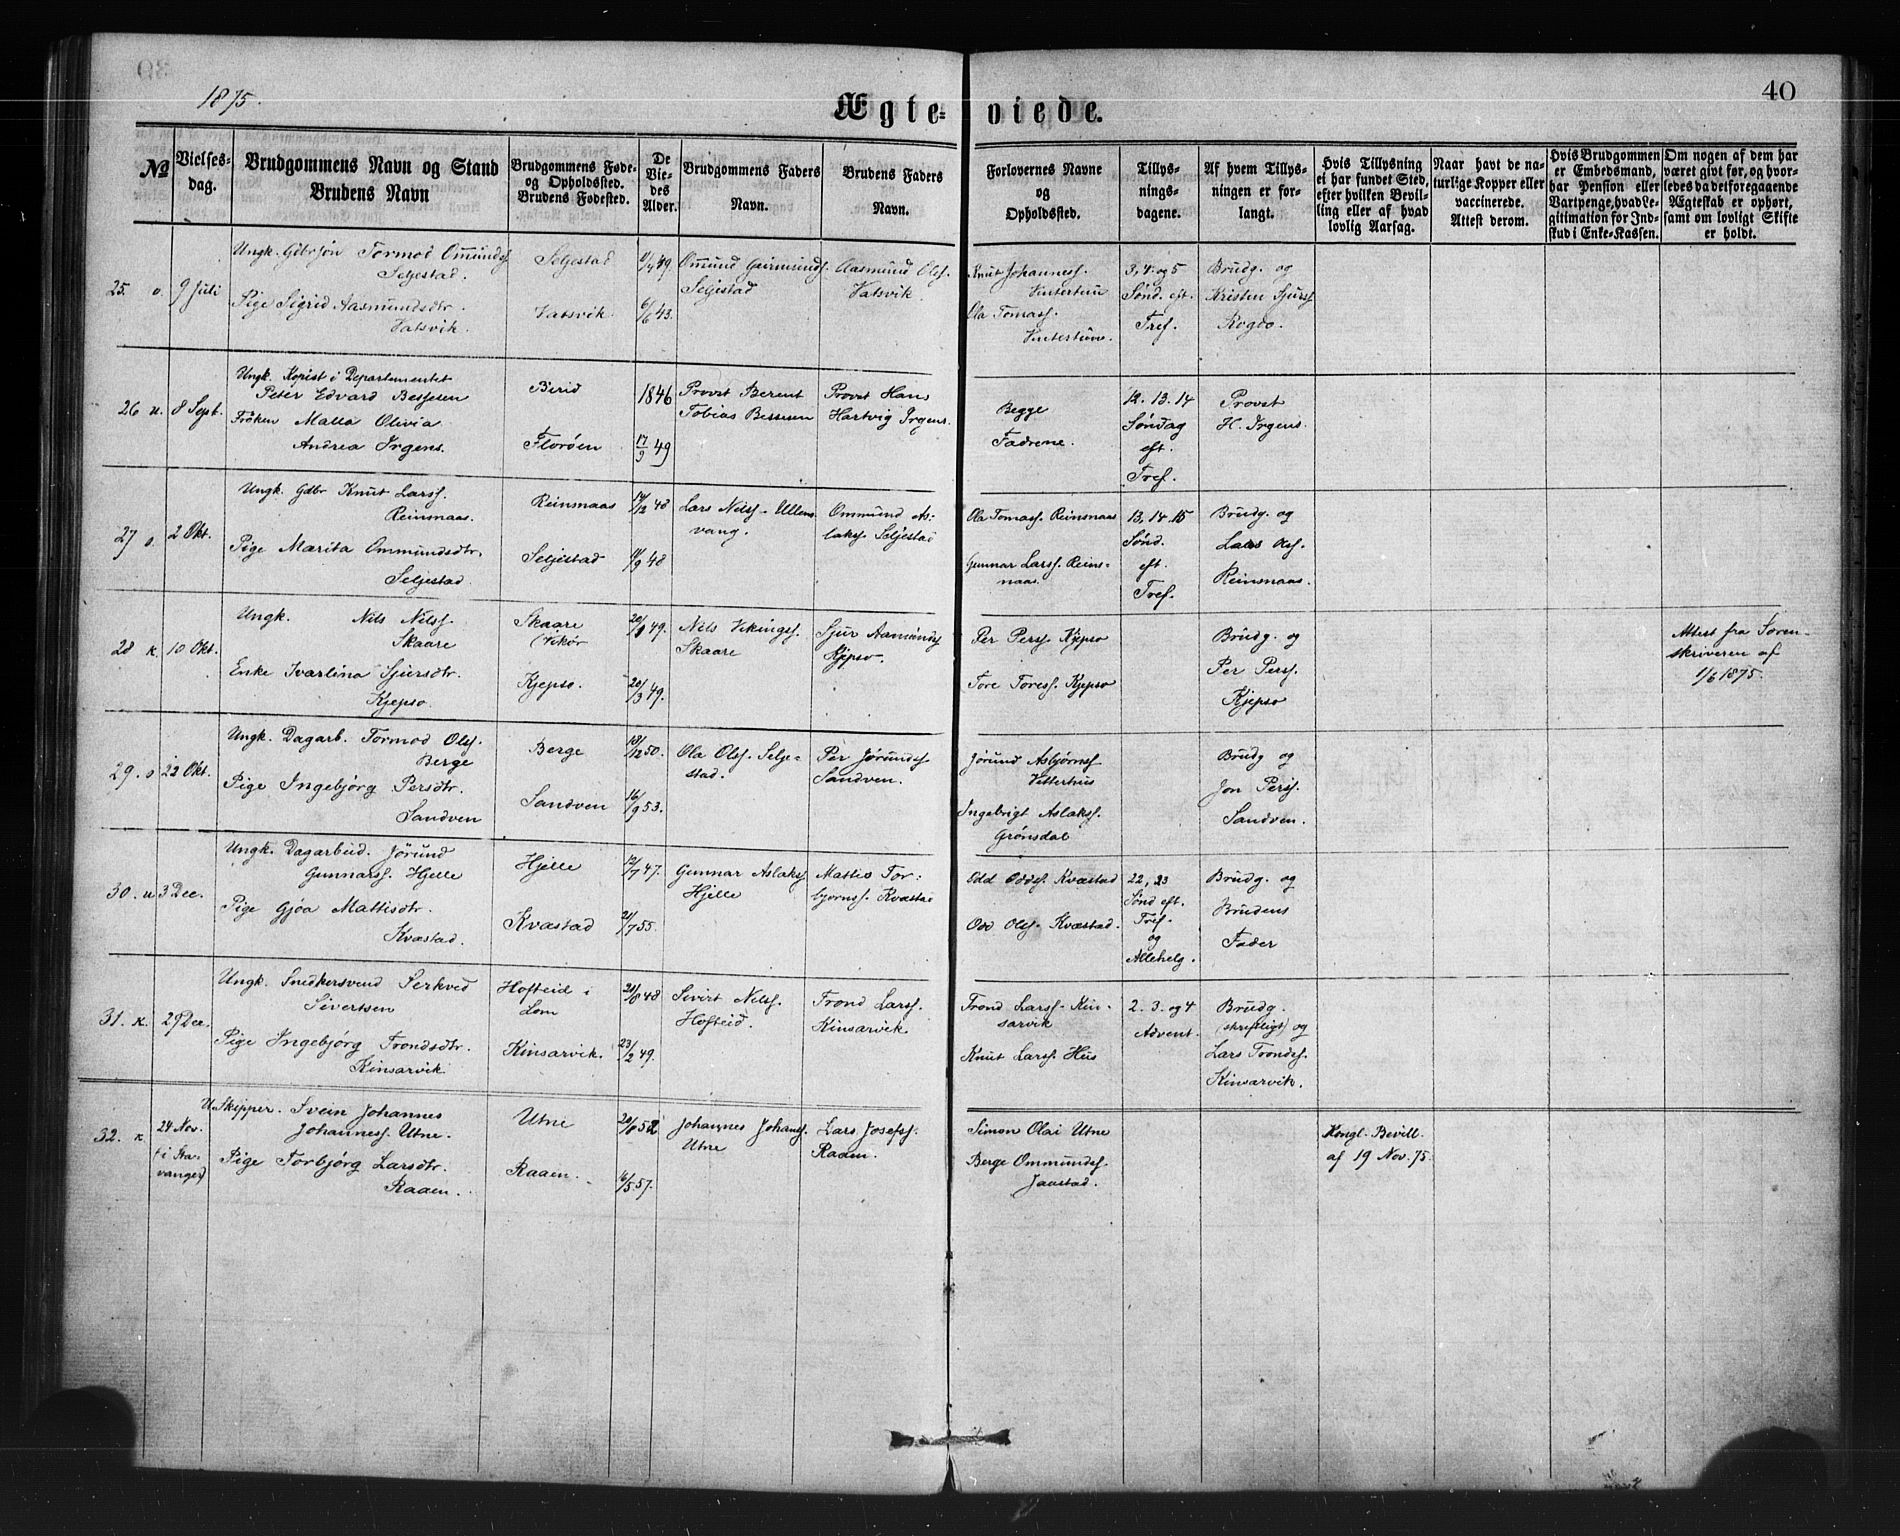 1875.
40
Ægteviede.
№
Vielsesdag.
Brudgommens Navn og Stand
Brudens Navn
Brudgommens Fødeog Opholdssted.
Brudens Fødested.
De Viedes Alder.
Brudgommens Faders Navn.
Brudens Faders Navn.
Forlovernes Navne og Opholdssted.
Tillysningsdagene.
Af hvem Tillysningen er forlangt.
Hvis Tillysning ei har fundet Sted, efter hvilken Bevilling eller af hvad lovlig Aarsag.
Naar havt de naturlige Kopper eller vaccinerede. Attest derom.
Hvis Brudgommen er Embedsmand, har Pension eller Vartpenge, hvad Legitimation for Indskud i Enke-Kassen.
Om nogen af dem har været givt før, og hvorledes da det foregaaende Ægteskab er ophørt, samt om lovligt Skifte er holdt.
25. o. 9 Juli
Ungk. Gdbrsøn Tormod Ommunds.
Seljestad.
Pige Sigrid Aasmundsdtr.
Vatsvik.
Seljestad
Vatsvik.
49.
6/6 43.
Ommund Geirmunds.
Seljestad
Aasmund Ols.
Vatsvik.
Knut Johanness.
Vintertun
Ola Tomass.
Vintertun.
3, 4 og 5
Sønd. eft.
Tref.
Brudg. og
Kristen Sjurss.
Rogdo.
26 u. 8 Sept.
Ungk. Kopist i Departementet
Peter Edvard Bessesen
Frøken Malla Olivia
Andrea Irgens.
Birid
Florøen
1846
17/9 49
Provst Berent
Tobias Bessesen
Provst Hans
Hartvig Irgens.
Begge
Fædrene.
12. 13. 14
Søndag
eft.
Tref.
Provst
H. Irgens.
27 o. 2 Okt.
Ungk. Gdbr Knut Larss.
Reinsnaas.
Pige Marita Ommundsdtr.
Seljestad.
Reinsnaas
Seljestad
/12 48
/9 48
Lars Nilss. Ullensvang.
Ommund Aslaks. Seljestad
Ola Tomass. Reinsnaas
Gunnar Larss. Reinsnaas.
13. 14. 15
Sønd.
eft.
Tref.
Brudg. og
Lars Ols.
Reinsnaas.
28 k. 10 Okt.
Ungk. Nils Nilss.
Skaare
Enke Ivarlina Sjursdtr.
Kjepso.
Skaare
(Vikør
Kjepso.
49.
20/3 49.
Nils Vikingss.
Skaare
Sjur Aamunds.
Kjepso.
Per Perss. Kjepso
Tore Toress. Kjepso
Brudg. og
Per Perss.
Kjepso
Attest fra Sorenskriveren af
1/6 1875.
29. o 22 Okt.
Ungk. Dagarb. Tormod Ols.
Berge
Pige Ingebjørg Persdtr.
Sandven
Berge
Sandven
18/12 50.
16/9 53.
Ola Olss. Seljestad.
Per Jørunds.
Sandven.
Jørund Asbjørns.
Vetterhus
Ingebrigt Aslakss.
Grønsdal
Brudg og
Jon Perss.
Sandven.
30. u 3 Dec.
Ungk. Dagarbeid. Jørund
Gunnarss. Hjelle
Pige Gjøa Mattisdtr.
Kvæstad.
Hjelle
Kvæstad
12/7 47.
21/7 55.
Gunnar Aslaks.
Hjelle
Mattis Torbjørnss. Kvæstad
Odd Oddss. Kvæstad
Odd Olss. Kvæstad.
22, 23
Sønd eft.
Tref.
og
Allehelg.
Brudg. og
Brudens
Fader
31. k. 29 Dec.
Ungk. Snedkersvend Serkved
Sivertsen
Pige Ingebjørg Trondsdtr.
Kinsarvik.
Hofteid i
Lom
Kinsarvik.
/8 48
23/2 49.
Sivert Nilss.
Hofteid.
Trond Larss.
Kinsarvik.
Trond Larss. Kinsarvik
Knut Larss. Hus
2. 3. og 4
Advent.
Brudg.
(skriftligt) og
Lars Trondss.
Kinsarvik.
32. k. 24 Nov.
(i Stavanger)
U. Skipper. Svein Johannes
Johanness. Utne.
Pige Torbjørg Larsdtr.
Raaen.
Utne
Raaen.
52
/5 57.
Johannes Johans.
Utne
Lars Josefss.
Raaen.
Simon Olai Utne
Berge Ommunds.
Jaastad.
Kongl. Bevill.
af 19 Nov. 75.